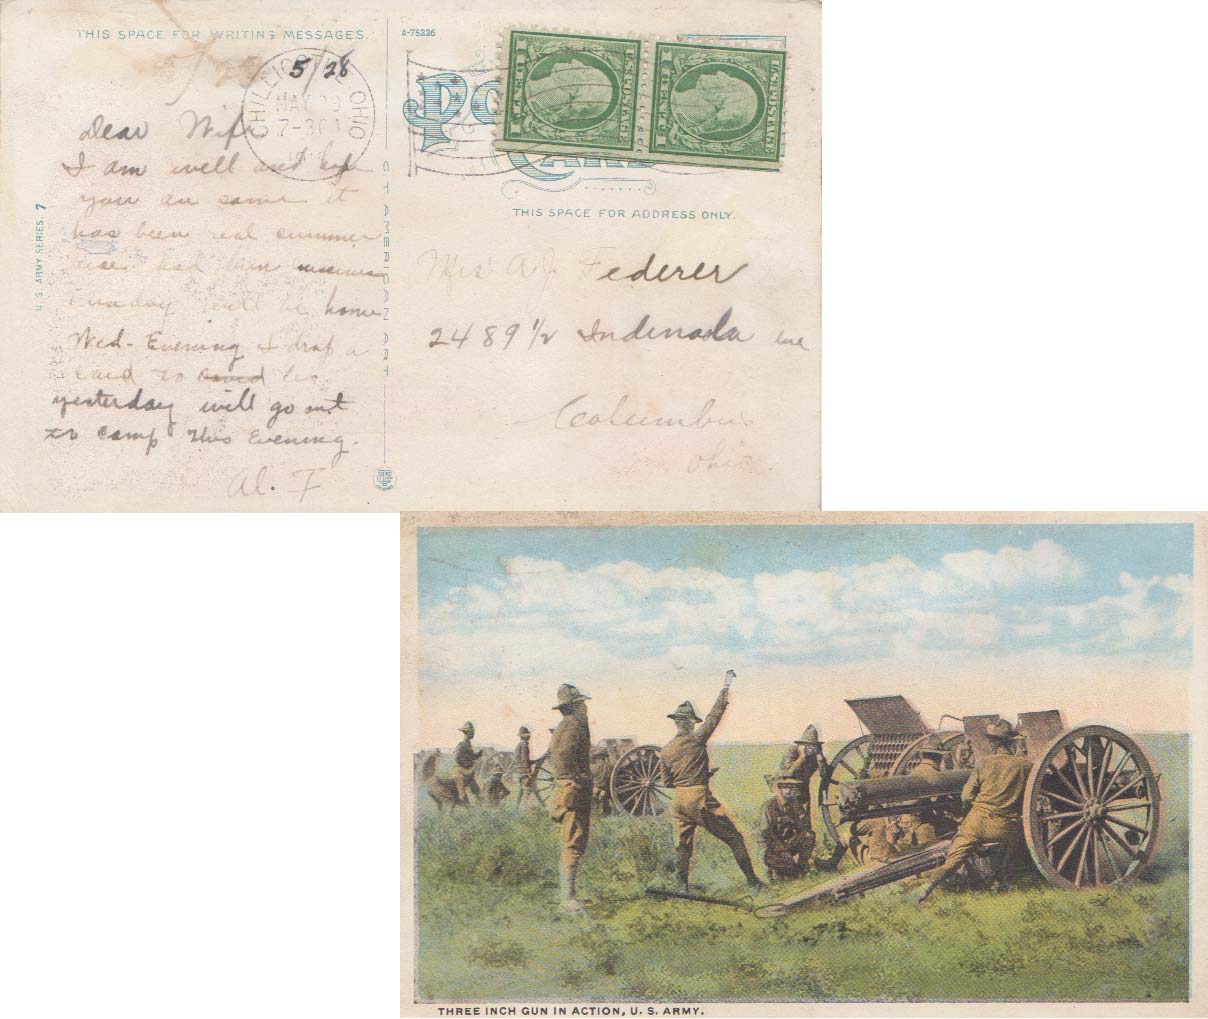 THIS SPACE FOR WRITING MESSAGES.
A-75226
5/28
CHILLICOTHE, OHIO
MAY 29
7-30
Dear Wife
I am well and hope
you are same it
has been real summer
had been
Tuesday will be home
Wed- Evening I drop a
card to
yesterday will go out
to camp this Evening.
Al. F
U. S. ARMY SERIES. 7
C. T. AMERICAN ART
POST
CARD
1 CENT 1
U.S. POSTAGE
1 CENT 1
U.S. POSTAGE
THIS SPACE FOR ADDRESS ONLY.
Mrs A J Federer
2489 1/2 Indinaola ave
Columbus
Ohio.
THREE INCH GUN IN ACTION, U. S. ARMY.